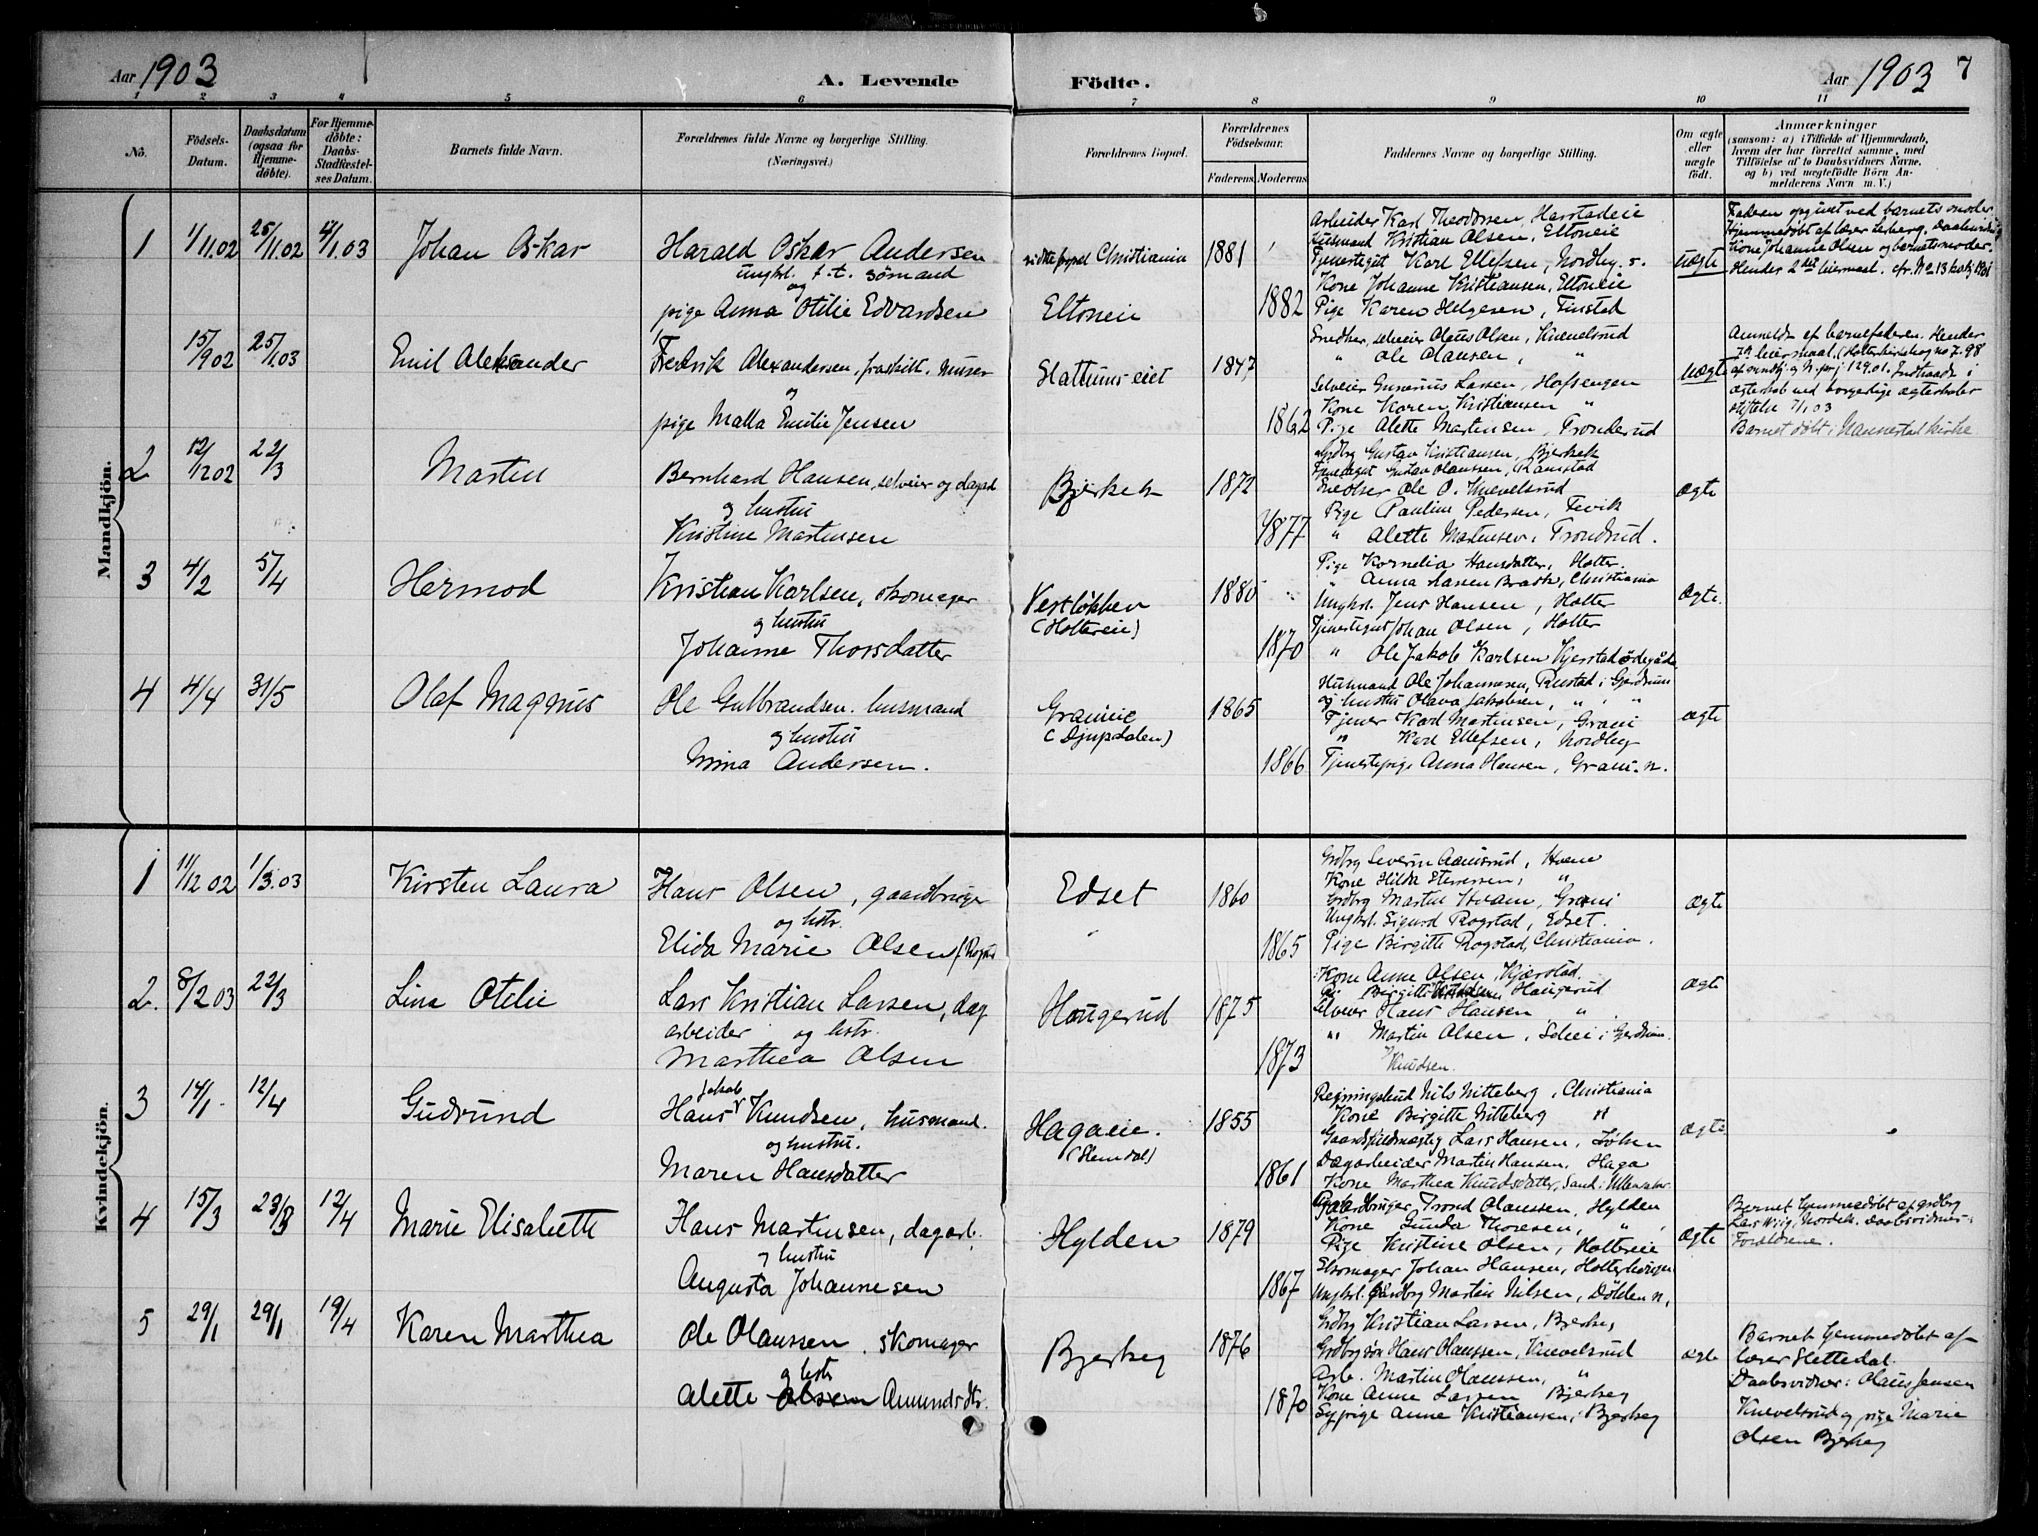 Aar 1903
A. Levende
Födte.
Aar 1903
7
1 2 3 4 5 6 7 8 9 10 11
No.
Födsels-Datum.
Daabsdatum (ogsaa for Hjemme-døbte).
For Hjemme-døbte: Daabs-Stadfæstel-ses Datum.
Barnets fulde Navn.
Forældrenes fulde Navne og borgerlige Stilling.
(Næringsvei.)
Forældrenes Bopæl.
Forældrenes Fødselsaar.
Faderens. Moderens.
Faddernes Navne og borgerlige Stilling.
Om ægte eller uægte født.
Anmærkninger
(saasom: a) i Tilfælde af Hjemmedaab, hvem der har forrettet samme, med Tilföielse af to Daabsvidners Navne, og b) ved uægtefödte Börn Anmelderens Navn m. V.)
Mandkjön.
1 1/11.02 25/11.02 4/1.03 Johan Oskar
Harald Oskar Andersen
ungk. t.t. sömand
og
pige Anna Otilie Edvardsen
Christiania
Eltoneie
1881
1882
Arbeider Karl Theodorsen, Harstadeie
Husmand Kristian Olsen, Eltoneie
Tjenestegut Karl Ellefsen, Nordby s.
Kone Johanne Kristiansen, Eltoneie
Pige Karen Helgesen, Finstad
uægte
Faderen opgivet ved barnets moder
Kone Johanne Olsen og barnets moder.
15/9 02 25/1.03 Emil Aleksander
Fredrik Alexandersen, fraskilt. murer
og
pige Malla Emilie Jensen
Slattums-eiet
1847
1862
Snedker, selveier Olaus Olsen, Knevelsrud
" Ole Olausen, "
Selveier Gunerius Larsen, Hofsengen
Kone Karen Kristiansen "
Pige Alette Martensen, Tronderud
uægte
Anmeldt af barnefaderen. Hendes
ægteskab ved borgerlige ægteskabs
stiftelse 7/1 03
Barnet döbt i Nannestad kirke
2 12/12 02 22/3 Martin
Bernhard Hansen, selveier og dagarb
og hustru
Kristine Martinsen
Bjerkek
1872
1877
Grdbr Gustav Kristiansen, Bjerkek
Tjenestegut Gustav Olaussen, Ramstad
Snedker Ole O. Knevelsrud
Pige Pauline Pedersen, Fevik
" Alette Martinsen, Trondrud.
ægte
3 4/2 5/4 Hermod
Kristian Karlsen, skomager
og hustru
Johanne Thorsdatter
Vestløkken
(Holtereie)
1880
1870
Pige Kornelia Hansdatter, Holter.
" Anna Hansen Braate, Christiania
Ungkl. Jens Hansen, Holter
Tjenestegut Johan Olsen, Holter
" Ole Jakob Karlsen Kjerstadødegård
ægte.
4 4/4 31/5 Olaf Magnus
Ole Gulbrandsen. husmand
og hustru
Nina Andersen.
Granieie
(Djupdalen)
1865
1866
Husmand Ole Johannesen, Rustad i Gjerdrum
og hustru Olava Jakobsen, " "
Tjener Karl Martinsen, Grani
" Karl Ellefsen, Nordby
Tjenestepige Anna Hansen, Grani n.
ægte
Kvindekjön.
1 11/12 02 1/3.03 Kirsten Laura
Hans Olsen, gaardbruger
og hstr.
Elida Marie Olsen
Edset
1860
1865
Grdbrg Severin Aamsrud, Hvam
Kone Hilda Stenersen, "
Grdbrg Martin Hvam, Grani
Ungkl. Sigurd Rogstad, Edset.
Pige Birgitte Rogstad, Christiania.
ægte
2. 8/2 03 22/3 Lina Otilie
Lars Kristian Larsen, dag
arbeider og hstr.
Marthea Olsen
Haugerud
1875
1873
Kone Anne Olsen Kjærstad.
Birgitte Haugerud
Selveier Hans Hansen "
" Martin Olsen, Solvei i Gjerdrum.
Knudsen.
ægte
3 14/1. 12/4 Gudrund
Hans Jakob Knudsen, husmand.
og hustru.
Maren Hansdatter
Hagaeie.
(Slemdal)
1855
1861
Regningsbud Nils Nitteberg, Christiania
Kone Birgitte Nitteberg "
Gaardsfuldmægtig Lars Hansen, Löken
Dagarbeider Martin Hansen, Haga
Kone Marthea Knudsdatter, Sand i Ullensaker
ægte
4 15/3 23/3 12/4 Marie Elisabeth
Hans Martinsen, dagarb.
og hustru
Augusta Johannesen
Hylden
1879
1867
Gaardbruger Trond Olaussen, Hylden
Kone Gunda Thoresen, "
Pige Kristine Olsen, Holtereie
Skomager Johan Hansen, Holterhaugen
Ungkl. Grdbrg Martin Nilsen, Döhlen n.
ægte
Barnet hjemmedöbt af grdbrg
Lars Wiig, Nordek. Daabsvidner:
Forældrene.
5 29/1 29/1 19/4 Karen Marthea
Ole Olaussen, skomager
og hstr
Alette Olsen Amundsdtr.
Bjerkeg
1876
1870
Grdbrg Kristian Larsen, Bjerkeg
Grdbrg sön Hans Olaussen, Knevelsrud
Arb. Martin Olaussen, "
Kone Anne Larsen Bjerkeg
Sypige Anne Kristiansen, Bjerkeg
ægte
Barnet hjemmedöbt af
lærer Slettedal.
Daabsvidner: Olaus Jensen
Knevelsrud og pige Marie
Olsen Bjerkeg